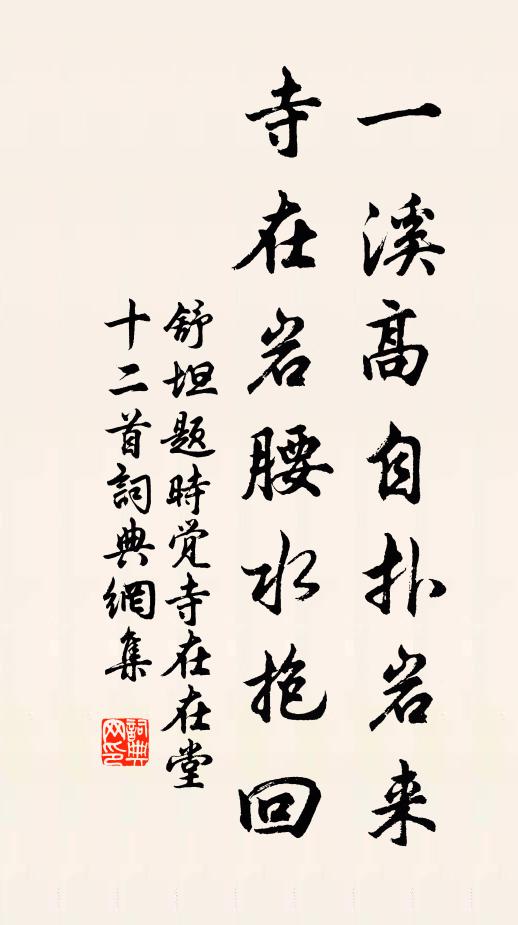 一溪高自扑岩来
寺在岩腰水抱回
舒坦题時觉寺在在堂
十二首詞典網集
詞典
网印